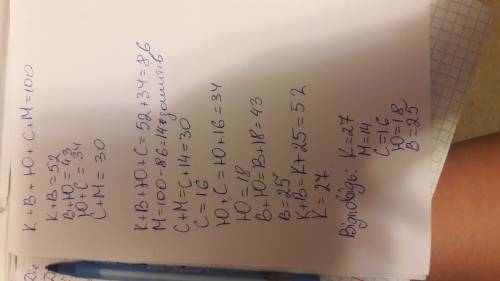 К + В + Ю + С + М = 100
К+В = 52
В+Ю = 43
Ю+С = 34
С+М = 30
К+В+Ю+С = 52+34 = 86
М = 100-86 = 14
С+М = С+14 = 30
С = 16
Ю+С = Ю+16 = 34
Ю = 18
В+Ю = В+18 = 43
В = 25
К+В = К+25 = 52
К = 27
Відповідь: К = 27
М = 14
С = 16
Ю = 18
В = 25